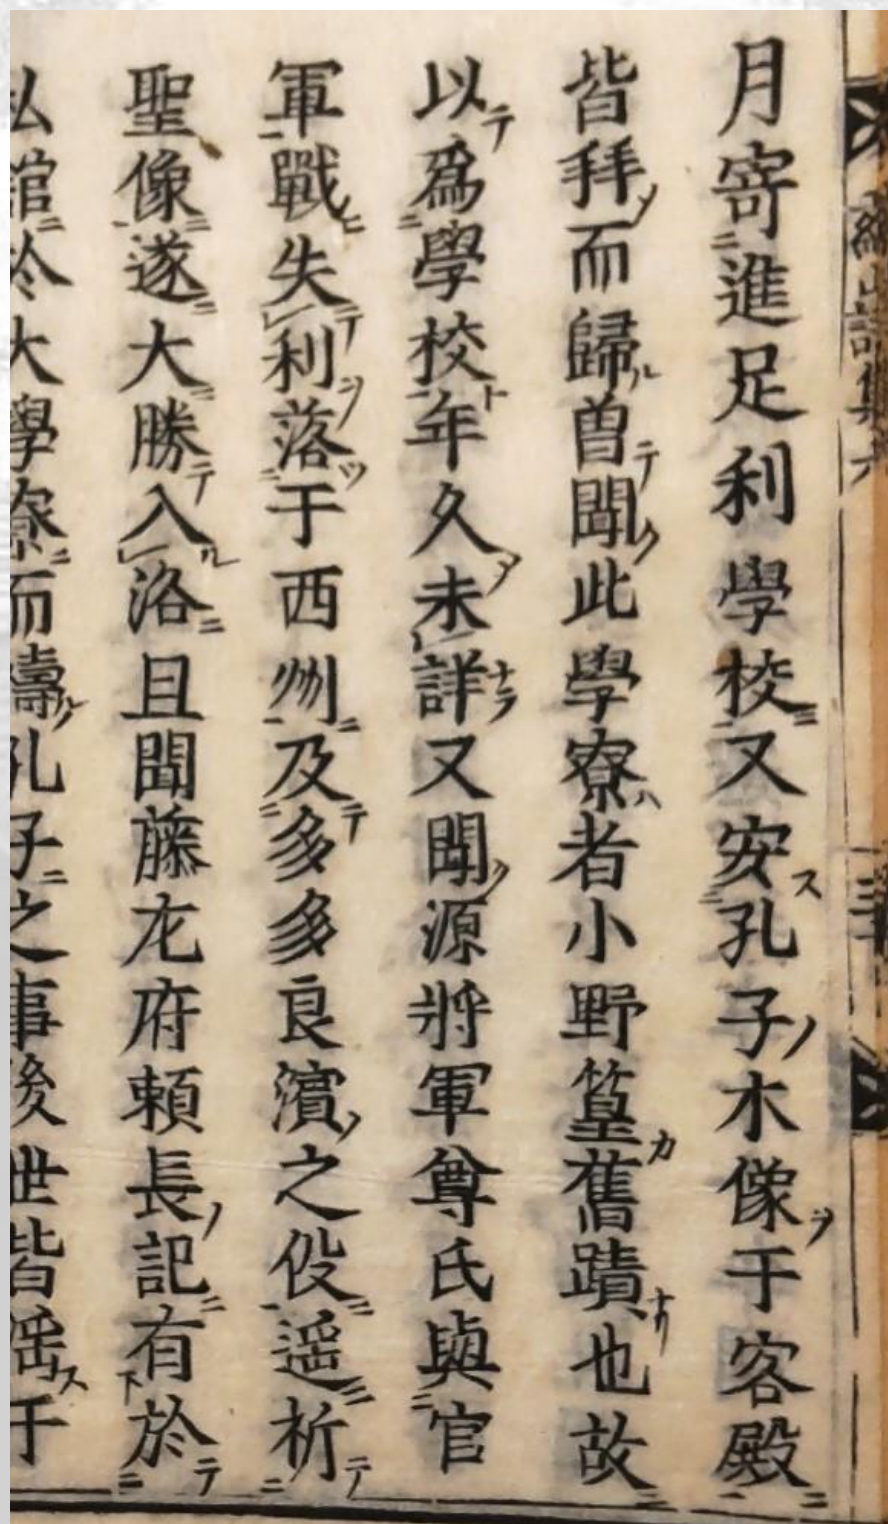 月寄進足利學校又安孔子木像于客殿
皆拜而歸曽聞此學寮者小野篁舊蹟也故
以爲學校年久未詳又聞源將軍尊氏與官
軍戰失利落于西州及多多良濵之役遥祈
聖像遂大勝入洛且聞藤左府頼長記有於
私舘於大學寮而禱孔子之事後世皆